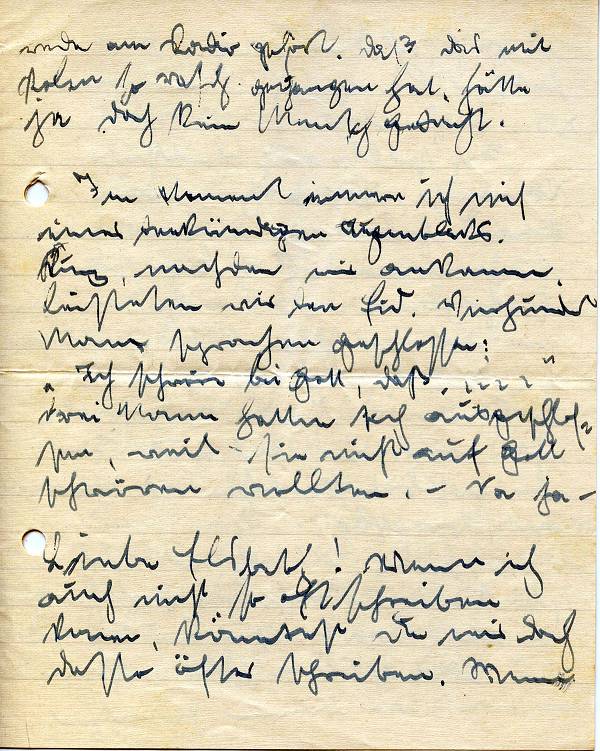 rede am Radio gehört. Daß das mit
Polen so rasch gegangen hat, hätte
ja doch kein Mensch gedacht.
Im Moment erinnere ich mich
eines denkwürdigen Augenblicks.
Kurz, nachdem wir ankamen,
leisteten wir den Eid. Vierhundert
Mann sprachen geschlossen:
„Ich schwöre bei Gott, daß, . . . . "
Drei Mann hatten sich ausgeschlos-
sen, weil sie nicht auf Gott
schwören wollten. – Na ja –
Liebe Elsbeth! Wenn ich
auch nicht so oft schreiben
kann, könntest Du mir doch
desto öfter schreiben. Wenn